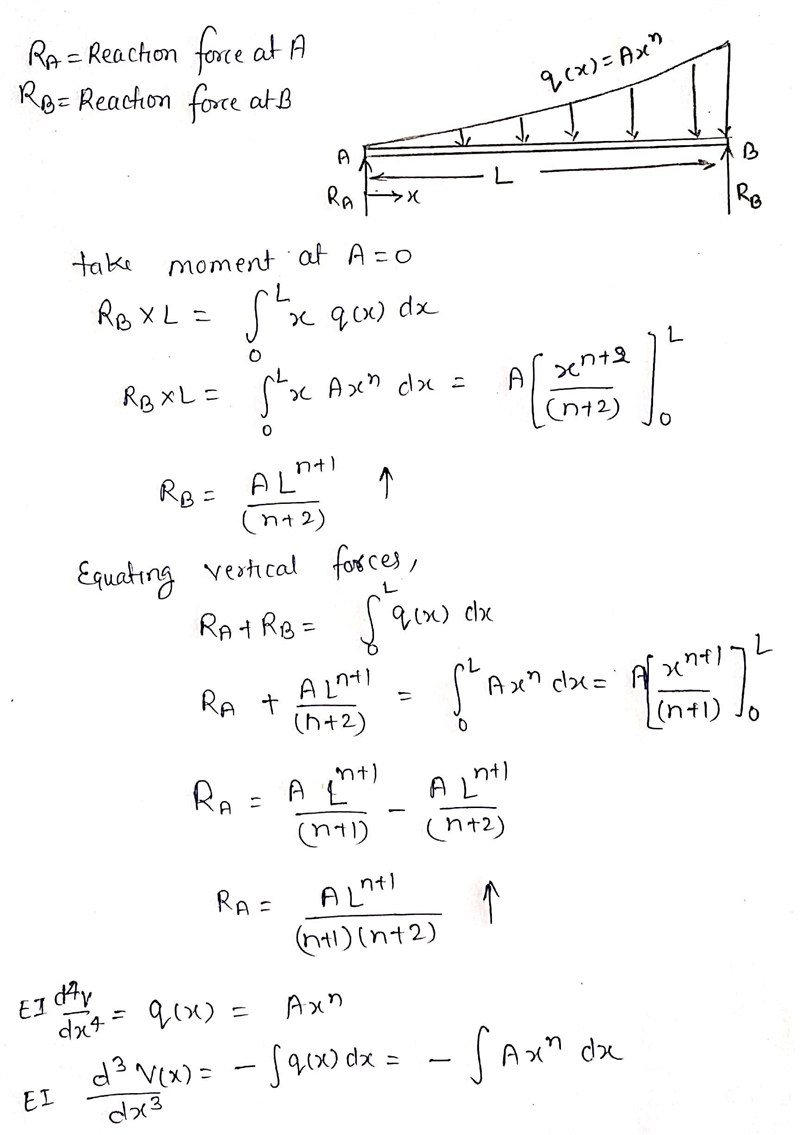 R_A = Reaction force at A
R_B = Reaction force at B
q(x) = Ax^n
A
B
L
R_A
→x
R_B
take moment at A = 0
R_B × L = ∫_0^L x q(x) dx
R_B × L = ∫_0^L x Ax^n dx = A[x^{n+2}/(n+2)]_0^L
R_B = AL^{n+1}/(n+2) ↑
Equating vertical forces,
R_A + R_B = ∫_0^L q(x) dx
R_A + AL^{n+1}/(n+2) = ∫_0^L Ax^n dx = A[x^{n+1}/(n+1)]_0^L
R_A = AL^{n+1}/(n+1) − AL^{n+1}/(n+2)
R_A = AL^{n+1}/(n+1)(n+2) ↑
EI d^4v/dx^4 = q(x) = Ax^n
EI d^3 V(x)/dx^3 = −∫q(x) dx = −∫Ax^n dx